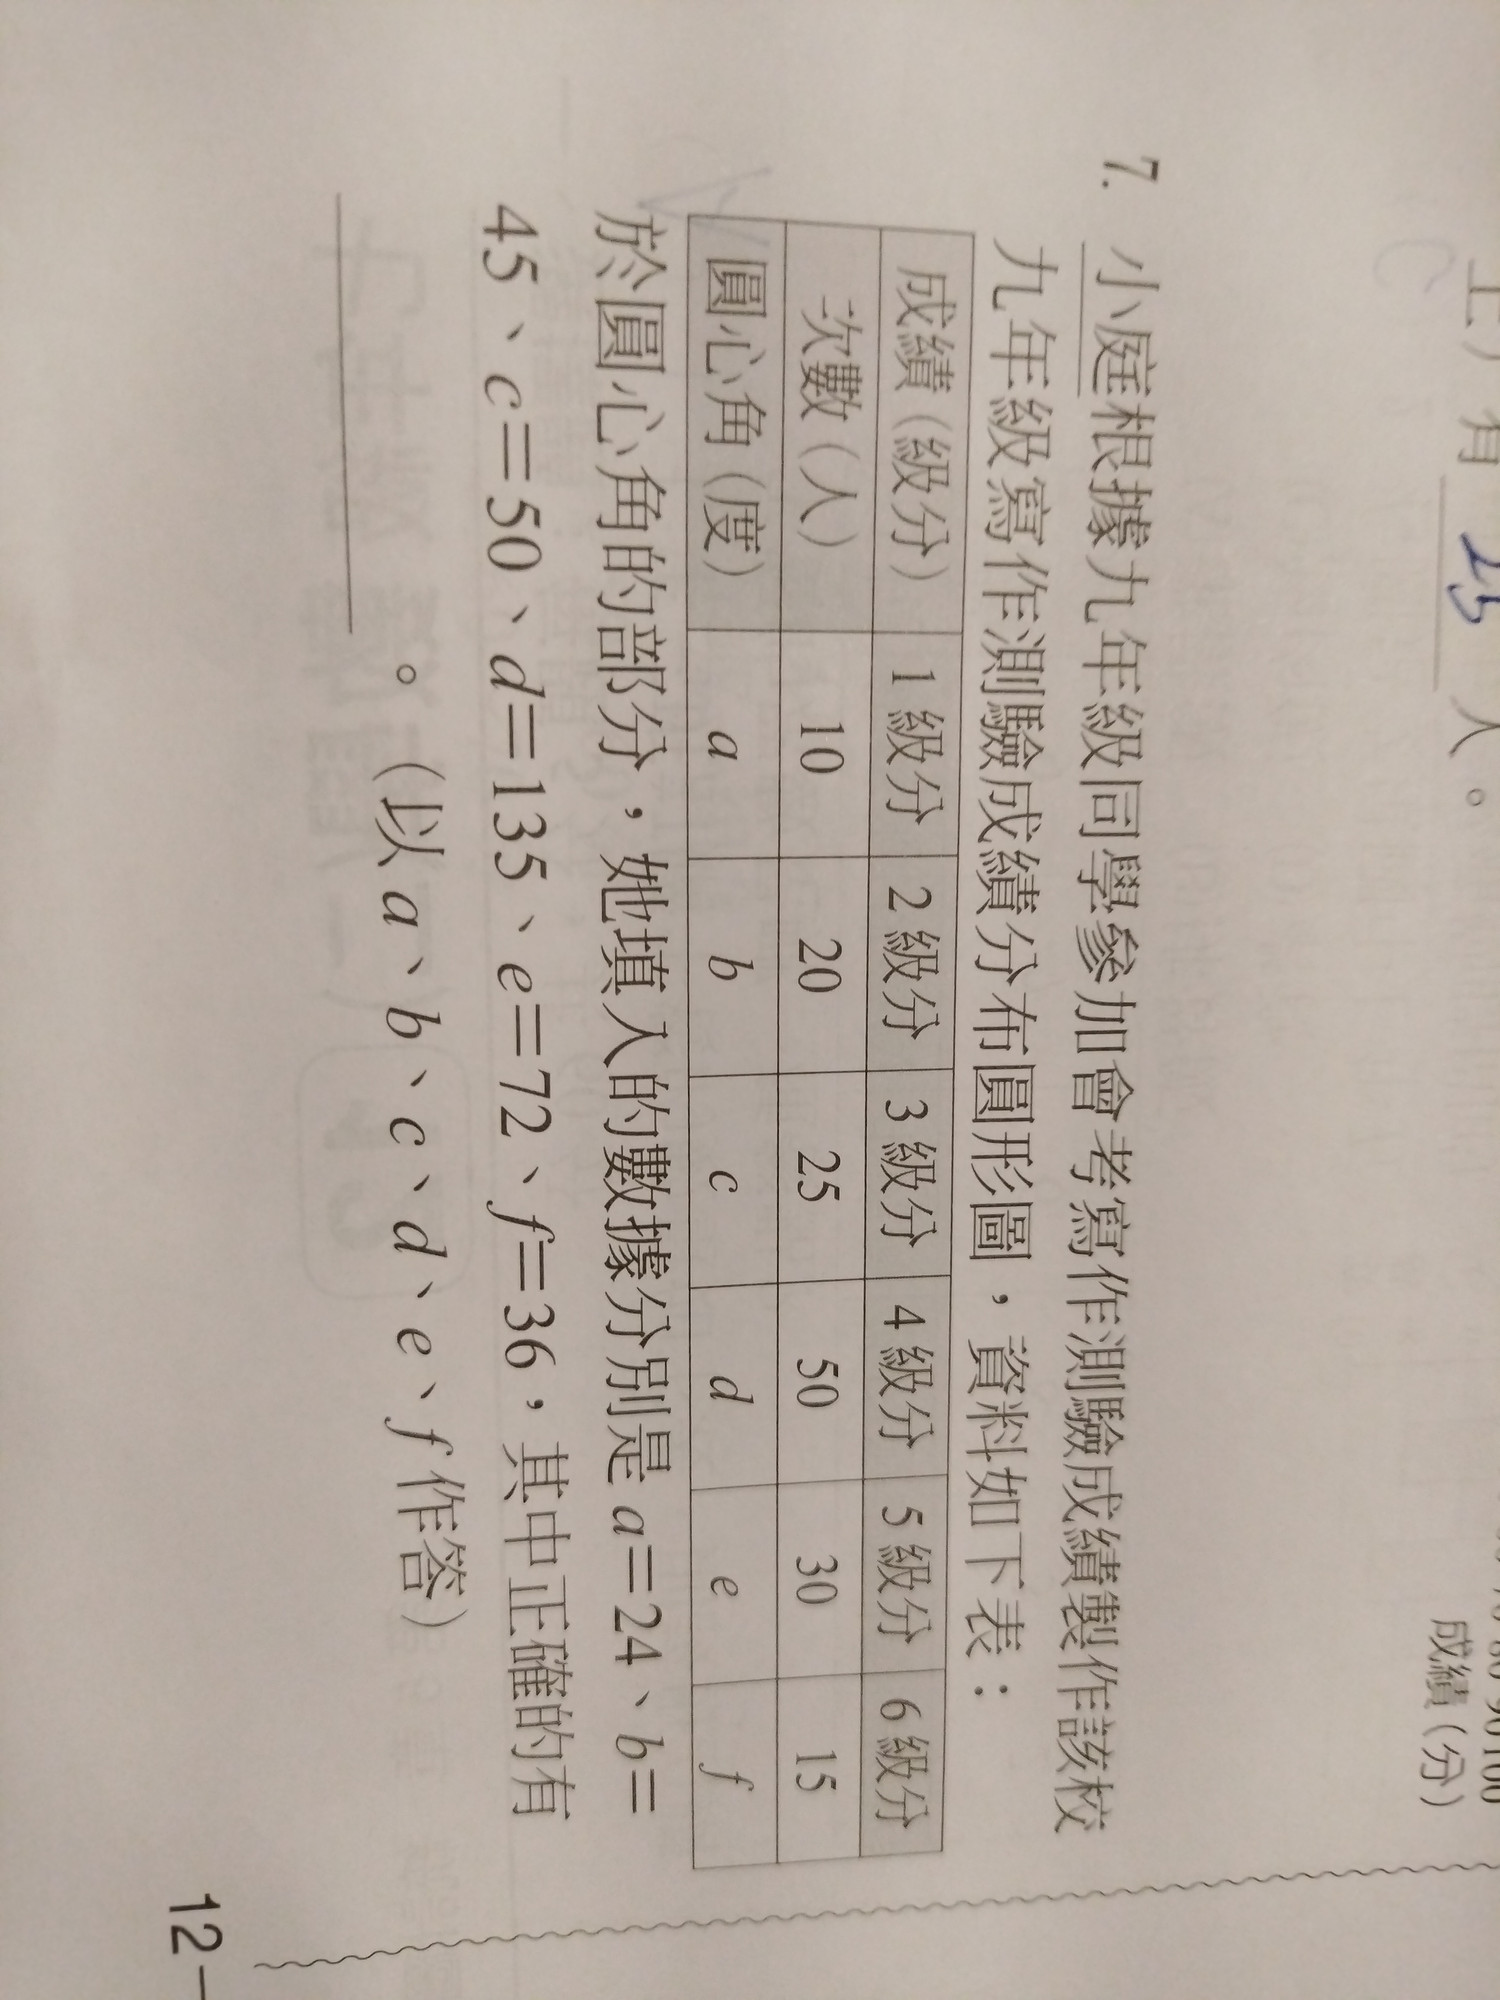 上)有 25 人。
90 100
成績(分)
7. 小庭根據九年級同學參加會考寫作測驗成績製作該校
九年級寫作測驗成績分布圓形圖,資料如下表:
成績(級分) 1級分 2級分 3級分 4級分 5級分 6級分
次數(人) 10 20 25 50 30 15
圓心角(度) a b c d e f
於圓心角的部分,她填入的數據分別是 a=24、b=
45、c=50、d=135、e=72、f=36,其中正確的有
。(以 a、b、c、d、e、f 作答)
12-